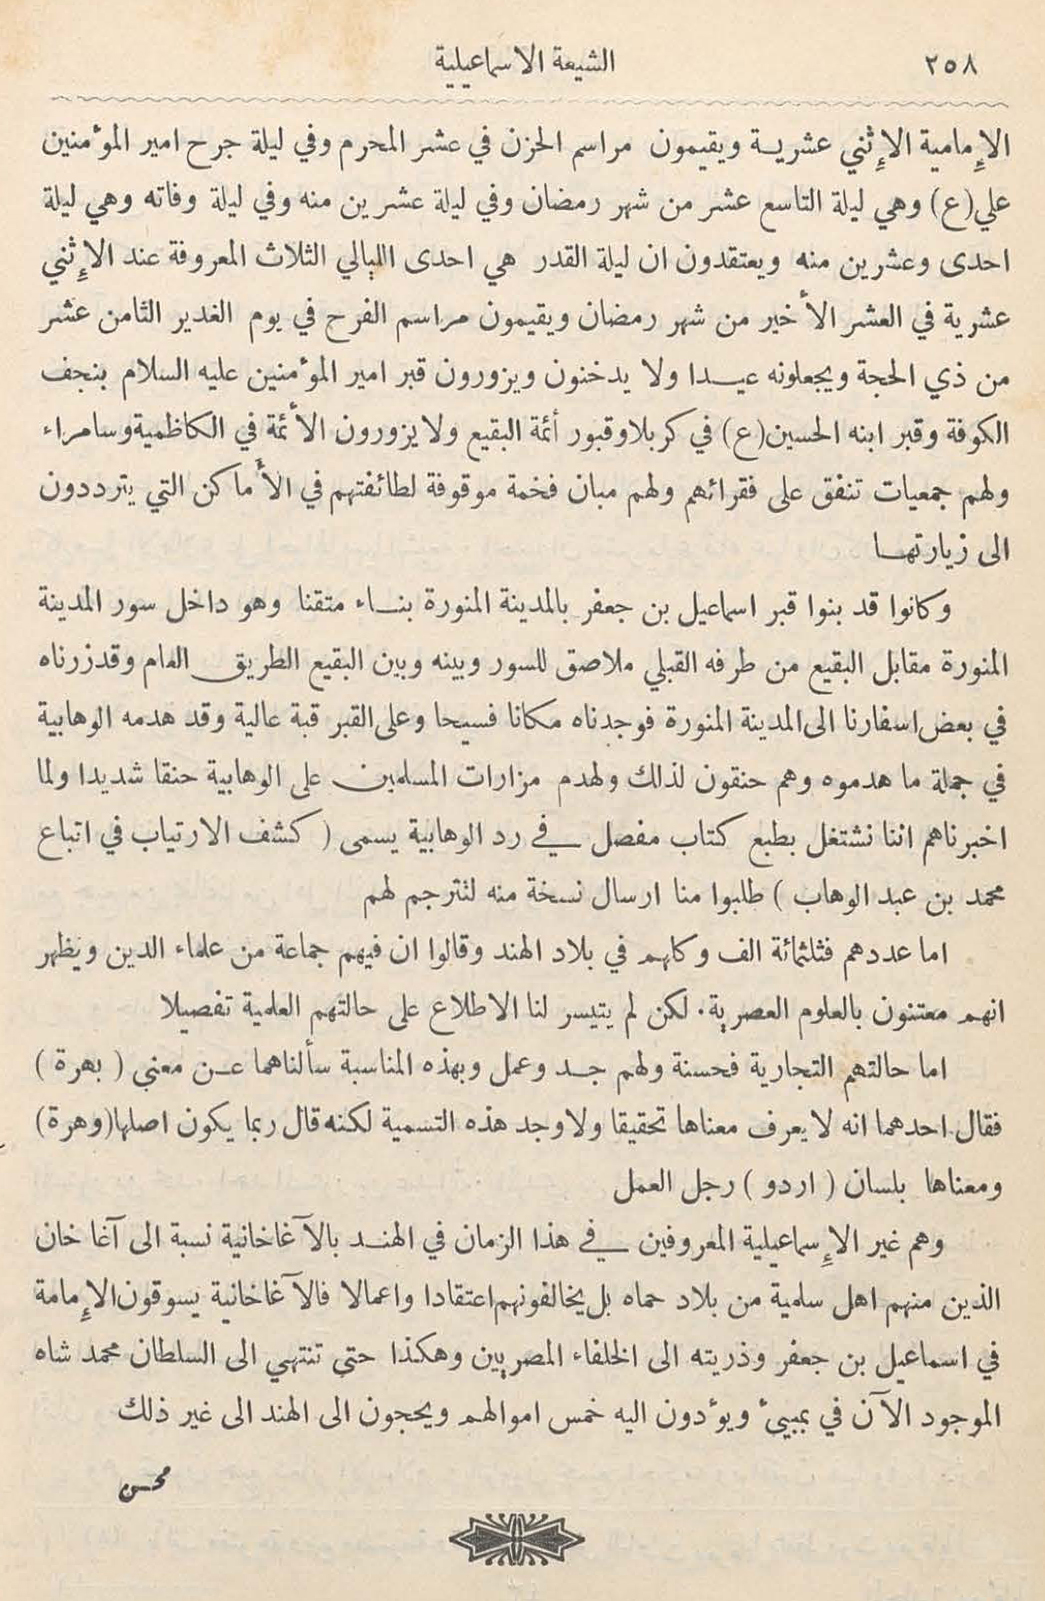 ٢٥٨
الشيعة الاسماعيلية
الإمامية الإثني عشريـة ويقيمون مراسم الحزن في عشر المحرم وفي ليلة جرح امير المؤمنين
علي (ع) وهي ليلة التاسع عشر من شهر رمضان وفي ليلة عشرين منه وفي ليلة وفاته وهي ليلة
احدى وعشرين منه ويعتقدون ان ليلة القدر هي احدى الليالي الثلاث المعروفة عند الإثني
عشرية في العشر الأخير من شهر رمضان ويقيمون مراسم الفرح في يوم الغدير الثامن عشر
من ذي الحجة ويجعلونه عيـدا ولا يدخنون ويزورون قبر امير المؤمنين عليه السلام بنجف
الكوفة وقبر ابنه الحسين (ع) في كربلا وقبور أئمة البقيع ولا يزورون الأئمة في الكاظمية وسامراء
ولهم جمعيات تنفق على فقرائهم ولهم مبان فخمة موقوفة لطائفتهم في الأماكن التي يترددون
الى زيارتهـا
وكانوا قد بنوا قبر اسماعيل بن جعفر بالمدينة المنورة بنـاء متقنا وهو داخل سور المدينة
المنورة مقابل البقيع من طرفه القبلي ملاصق للسور وبينه وبين البقيع الطريق العام وقد زرناه
في بعض اسفارنا الى المدينة المنورة فوجدناه مكانا فسيحا وعلى القبر قبة عالية وقد هدمه الوهابية
في جملة ما هدموه وهم حنقون لذلك ولهدم مزارات المسلمين على الوهابية حنقا شديدا ولما
اخبرناهم اننا نشتغل بطبع كتاب مفصل في رد الوهابية يسمى ( كشف الارتياب في اتباع
محمد بن عبد الوهاب ) طلبوا منا ارسال نسخة منه لنترجم لهم
اما عددهم فثلثمائة الف وكلهم في بلاد الهند وقالوا ان فيهم جماعة من علماء الدين ويظهر
انهم معتنون بالعلوم العصرية. لكن لم يتيسر لنا الاطلاع على حالتهم العلمية تفصيلا
اما حالتهم التجارية فحسنة ولهم جـد وعمل وبهذه المناسبة سألناهما عـن معنى ( بهرة )
فقال احدهما انه لا يعرف معناها تحقيقا ولا وجد هذه التسمية لكنه قال ربما يكون اصلها (وهرة)
ومعناها بلسان ( اردو ) رجل العمل
وهم غير الإسماعيلية المعروفين في هذا الزمان في الهنـد بالآغاخانية نسبة الى آغا خان
الذين منهم اهل سلمية من بلاد حماه بل يخالفونهم اعتقادا واعمالا فالآغاخانية يسوقون الإمامة
في اسماعيل بن جعفر وذريته الى الخلفاء المصريين وهكذا حتى تنتهي الى السلطان محمد شاه
الموجود الآن في بمبيئ ويؤدون اليه خمس اموالهم ويحجون الى الهند الى غير ذلك
محسن